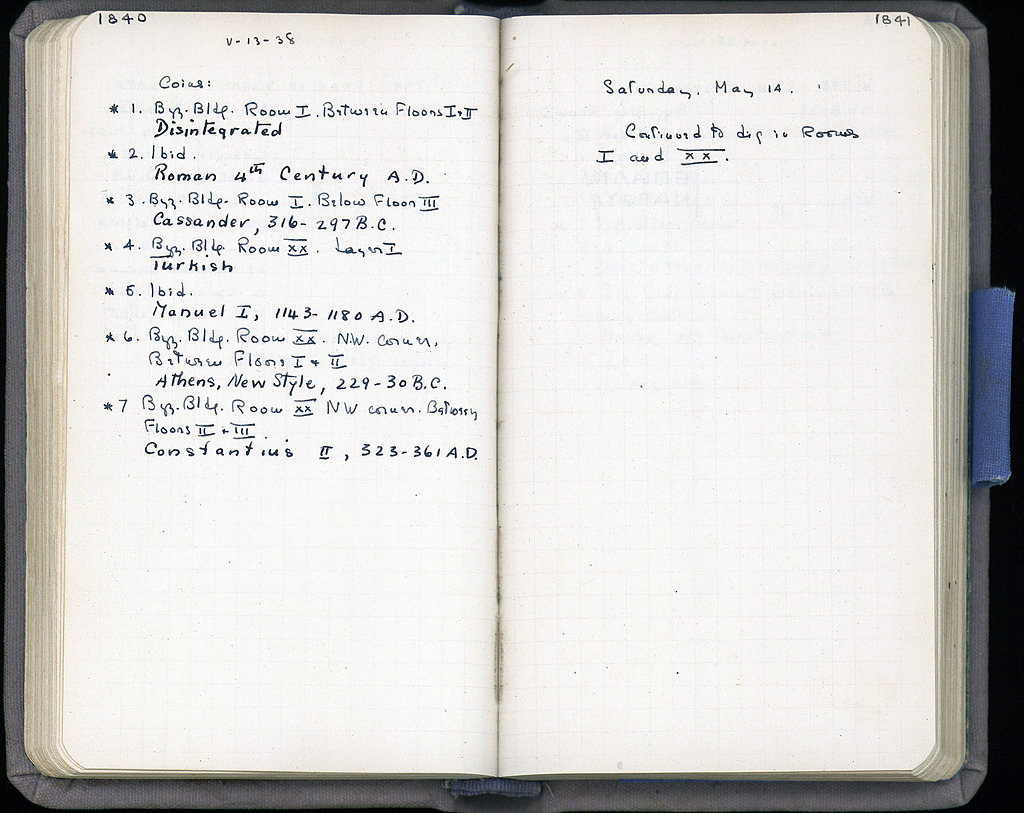 1840
V-13-38
Coins:
* 1. Byz. Bldg. Room I. Between Floors I+II
Disintegrated
* 2. Ibid.
Roman 4th Century A.D.
* 3. Byz. Bldg. Room I. Below Floor III
Cassander, 316-297 B.C.
* 4. Byz. Bldg. Room XX. Layer I
Turkish
* 5. Ibid.
Manuel I, 1143-1180 A.D.
* 6. Byz. Bldg. Room XX. N.W. corner,
Between Floors I + II
Athens, New Style, 229-30 B.C.
* 7 Byz. Bldg. Room XX NW corner. Between
Floors II + III.
Constantius II, 323-361 A.D.
1841
Saturday, May 14.
Continued to dig in Rooms
I and XX.